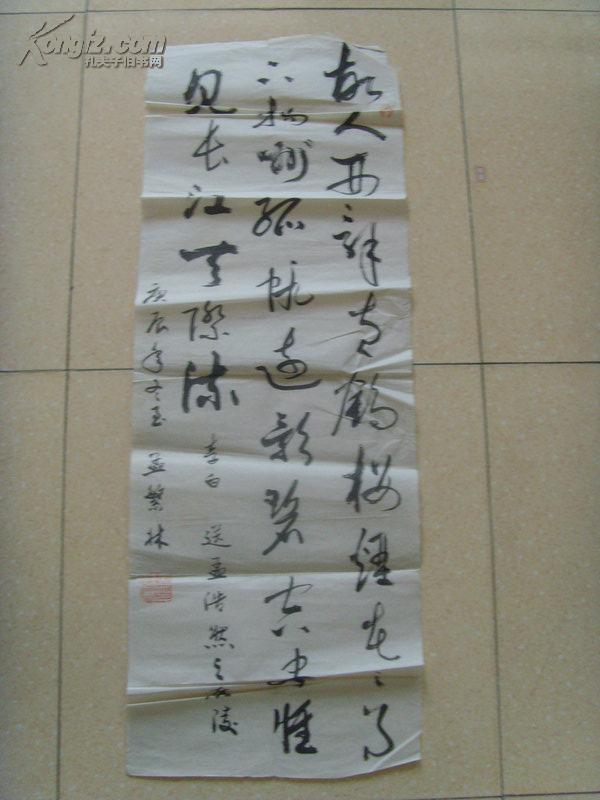 Kongfz.com
孔夫子旧书网
故人西辞黄鹤楼煙花三月
下扬州孤帆远影碧空尽惟
见长江天際流 李白 送孟浩然之广陵
庚辰年冬至 孟繁林